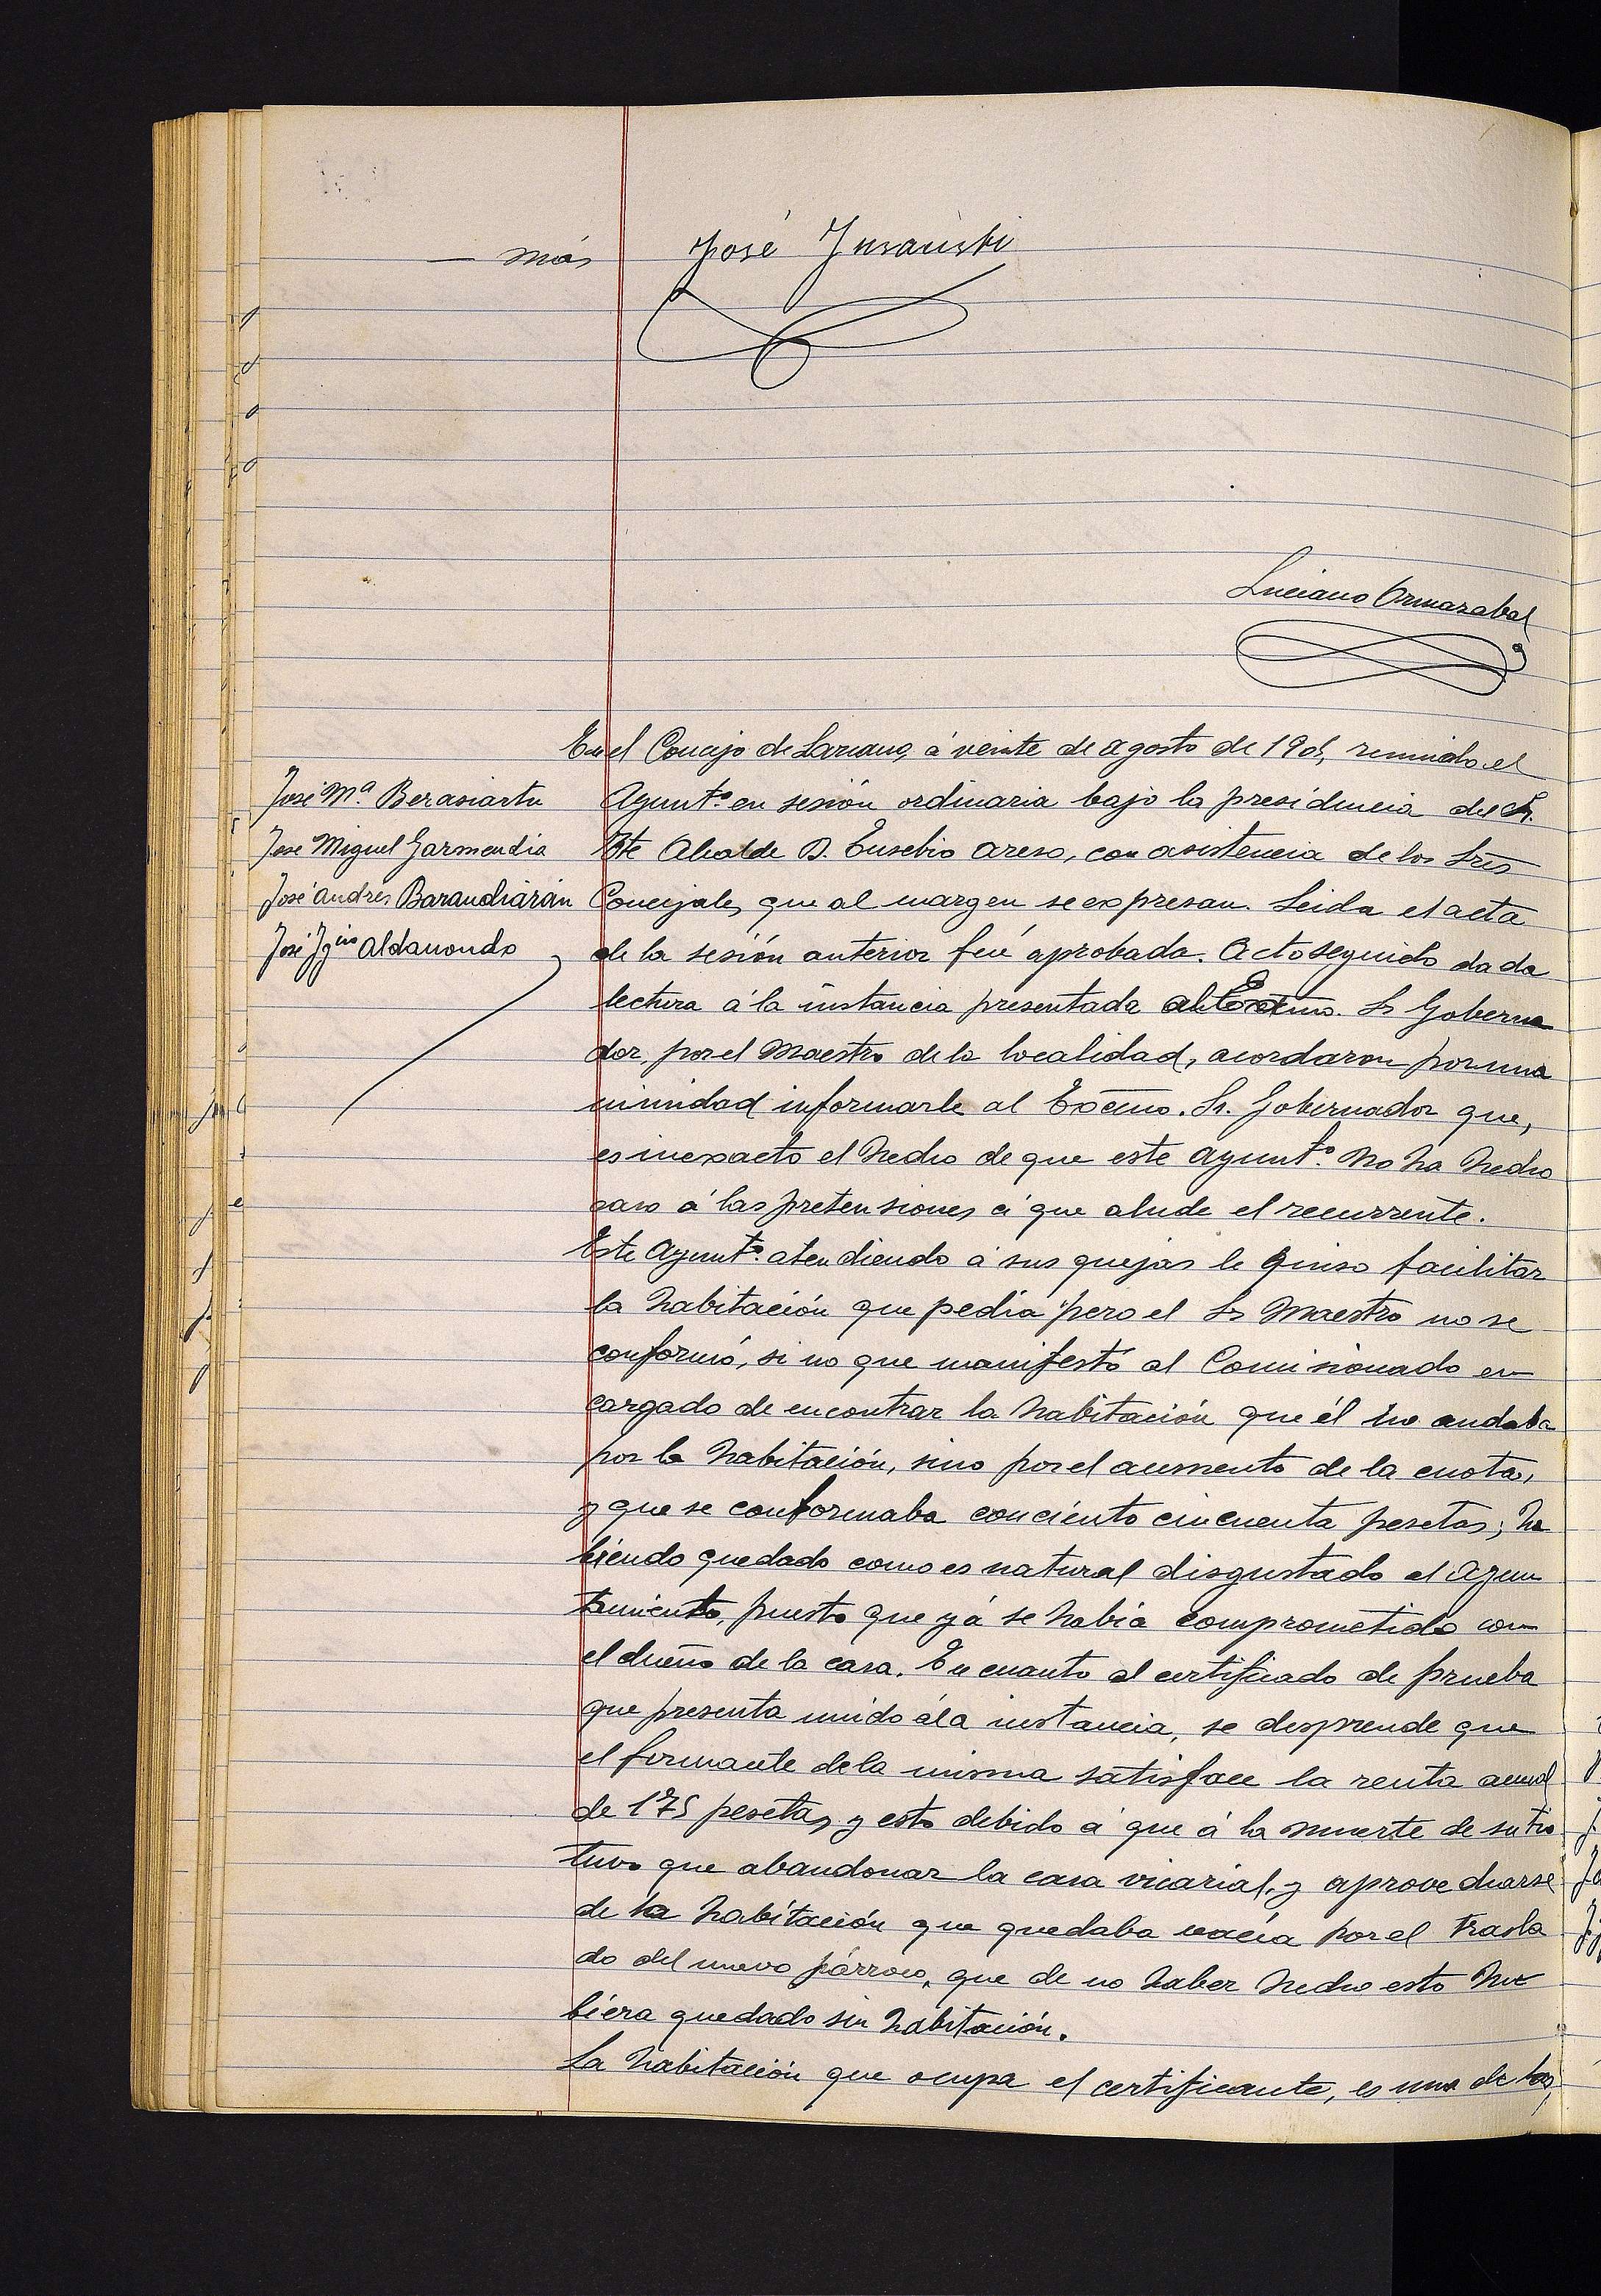 — más José Insausti
Luciano Ormazabal
En el Concejo de Lazcano, á veinte de agosto de 1905, reunido el
José Mª Berasiartu
José Miguel Garmendia
José Andrés Barandiarán
José Ygcio Aldanondo
Ayuntº en sesión ordinaria bajo la presidencia del Sr.
Tte Alcalde D. Eusebio Areso, con asistencia de los Sres
Concejales que al margen se expresan. Leida el acta
de la sesión anterior fué aprobada. Acto seguido dada
lectura á la instancia presentada al Excmo. Sr Goberna
dor, por el Maestro de la localidad, acordaron por una
nimidad informarle al Excmo. Sr. Gobernador que,
es inexacto el hecho de que este Ayuntº no ha hecho
caso á las pretensiones á que alude el recurrente.
Este Ayuntº atendiendo á sus quejas le quiso facilitar
la habitación que pedia pero el Sr Maestro no se
conformó, si no que manifestó al Comisionado en
cargado de encontrar la habitación que él no andaba
por la habitación, sino por el aumento de la cuota,
y que se conformaba con ciento cincuenta pesetas; ha
biendo quedado como es natural disgustado el Ayun
tamiento, puesto que yá se habia comprometido con
el dueño de la casa. En cuanto al certificado de prueba
que presenta unido á la instancia, se desprende que
el firmante de la misma satisface la renta anual
de 175 pesetas, y esto debido á que á la muerte de su tio
tuvo que abandonar la casa vicarial, y aprovecharse
de la habitación que quedaba vacía por el trasla
do del nuevo párroco, que de no haber hecho esto hu
biera quedado sin habitación.
La habitación que ocupa el certificante, es una de las